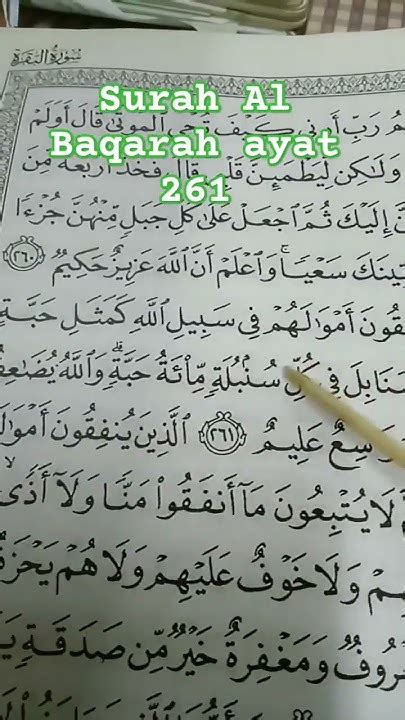 سُورَةُ البَقَرَةِ
Surah Al
Baqarah ayat
261
رَبِّ أَرِنِي كَيْفَ تُحْيِ ٱلْمَوْتَىٰ قَالَ أَوَلَمْ
وَلَٰكِن لِّيَطْمَئِنَّ قَلْبِي قَالَ فَخُذْ أَرْبَعَةً مِّنَ
إِلَيْكَ ثُمَّ ٱجْعَلْ عَلَىٰ كُلِّ جَبَلٍ مِّنْهُنَّ جُزْءًا
تِينَكَ سَعْيًا ۚ وَٱعْلَمْ أَنَّ ٱللَّهَ عَزِيزٌ حَكِيمٌ ٢٦٠
فِقُونَ أَمْوَٰلَهُمْ فِي سَبِيلِ ٱللَّهِ كَمَثَلِ حَبَّةٍ
نَابِلَ فِي كُلِّ سُنۢبُلَةٍ مِّا۟ئَةُ حَبَّةٍ ۗ وَٱللَّهُ يُضَٰعِفُ
وَٰسِعٌ عَلِيمٌ ٢٦١ ٱلَّذِينَ يُنفِقُونَ أَمْوَٰلَ
لَا يُتْبِعُونَ مَآ أَنفَقُوا۟ مَنًّا وَلَآ أَذًى
هِمْ وَلَا خَوْفٌ عَلَيْهِمْ وَلَا هُمْ يَحْزَ
عْرُوفٌ وَمَغْفِرَةٌ خَيْرٌ مِّن صَدَقَةٍ يَ